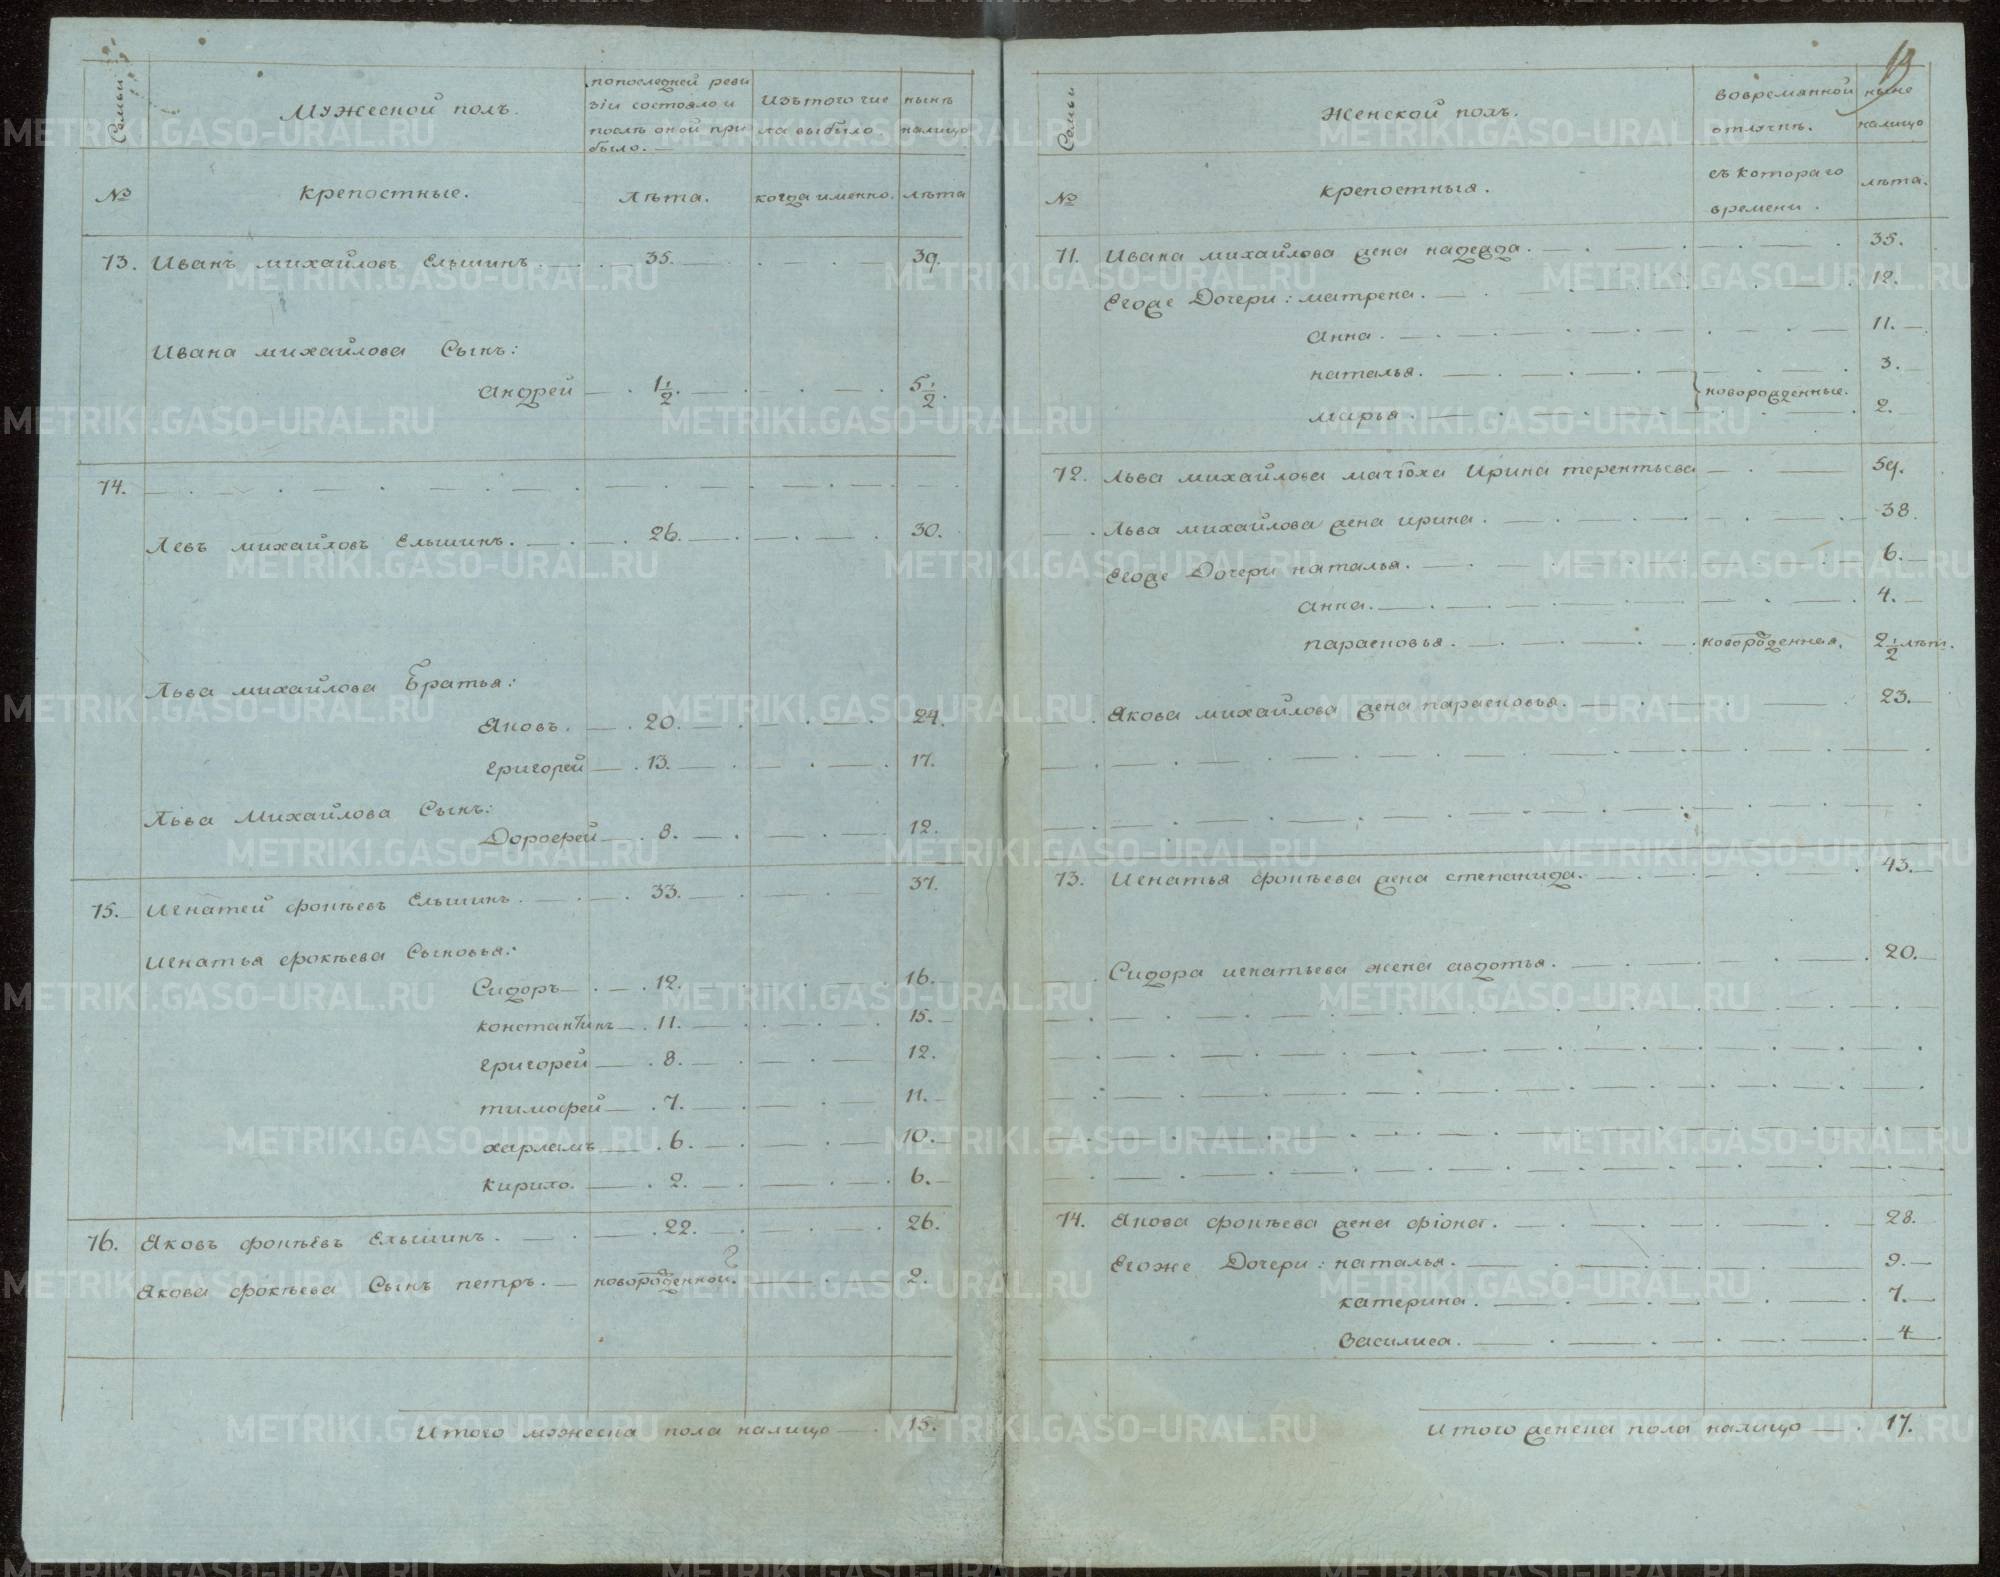 Семьи
Мужеской полъ.
попоследней реви
зіи состояло и
послѣ оной при
было. —
Изътого чис
ла выбыло
нынѣ
налицо
№
крепостные.
Лѣта.
когда именно.
лѣта
73. Иванъ михайловъ Ельшинъ. — 35. — 39.
Ивана михайлова Сынъ:
андрей — 1 1/2. — 5 1/2.
74.
Левъ михайловъ Ельшинъ. — 26. — 30.
Льва михайлова Братья:
Яковъ. — 20. — 24.
григорей — 13. — 17.
Льва Михайлова Сынъ:
Дорофей — 8. — 12.
75. Игнатей фокѣевъ Ельшинъ. — 33. — 37.
Игнатья фокѣева Сыновья:
Сидоръ — 12. — 16.
константинъ — 11. — 15.
григорей — 8. — 12.
тимофей — 7. — 11.
харламъ — 6. — 10.
кирило. — 2. — 6.
76. Яковъ фокѣевъ Ельшинъ. — 22. — 26.
Якова фокѣева Сынъ петръ. — новорожденной. — 2.
Итого мужеска пола налицо — 15.
19
Семьи
Женской полъ.
вовремянной
отлучкѣ.
ныне
налицо
№
крепостныя.
съ котораго
времени.
лѣта.
71. Ивана михайлова жена надежда. — 35.
Егоже Дочери: матрена. — 12.
анна. — 11.
наталья. — 3.
новорожденные.
марья. — 2.
72. Льва михайлова мачіоха Ирина терентьева — 59.
Льва михайлова жена ирина. — 38.
Егоже Дочери наталья. — 6.
анна. — 4.
парасковья. — новорожденная. 2 1/2 лѣт.
Якова михайлова жена парасковья. — 23.
73. Игнатья фокѣева жена степанида. — 43.
Сидора игнатьева жена авдотья. — 20.
74. Якова фокѣева жена фіона. — 28.
Егоже Дочери: наталья. — 9.
катерина. — 7.
Василиса. — 4
Итого женска пола налицо — 17.
METRIKI.GASO-URAL.RU